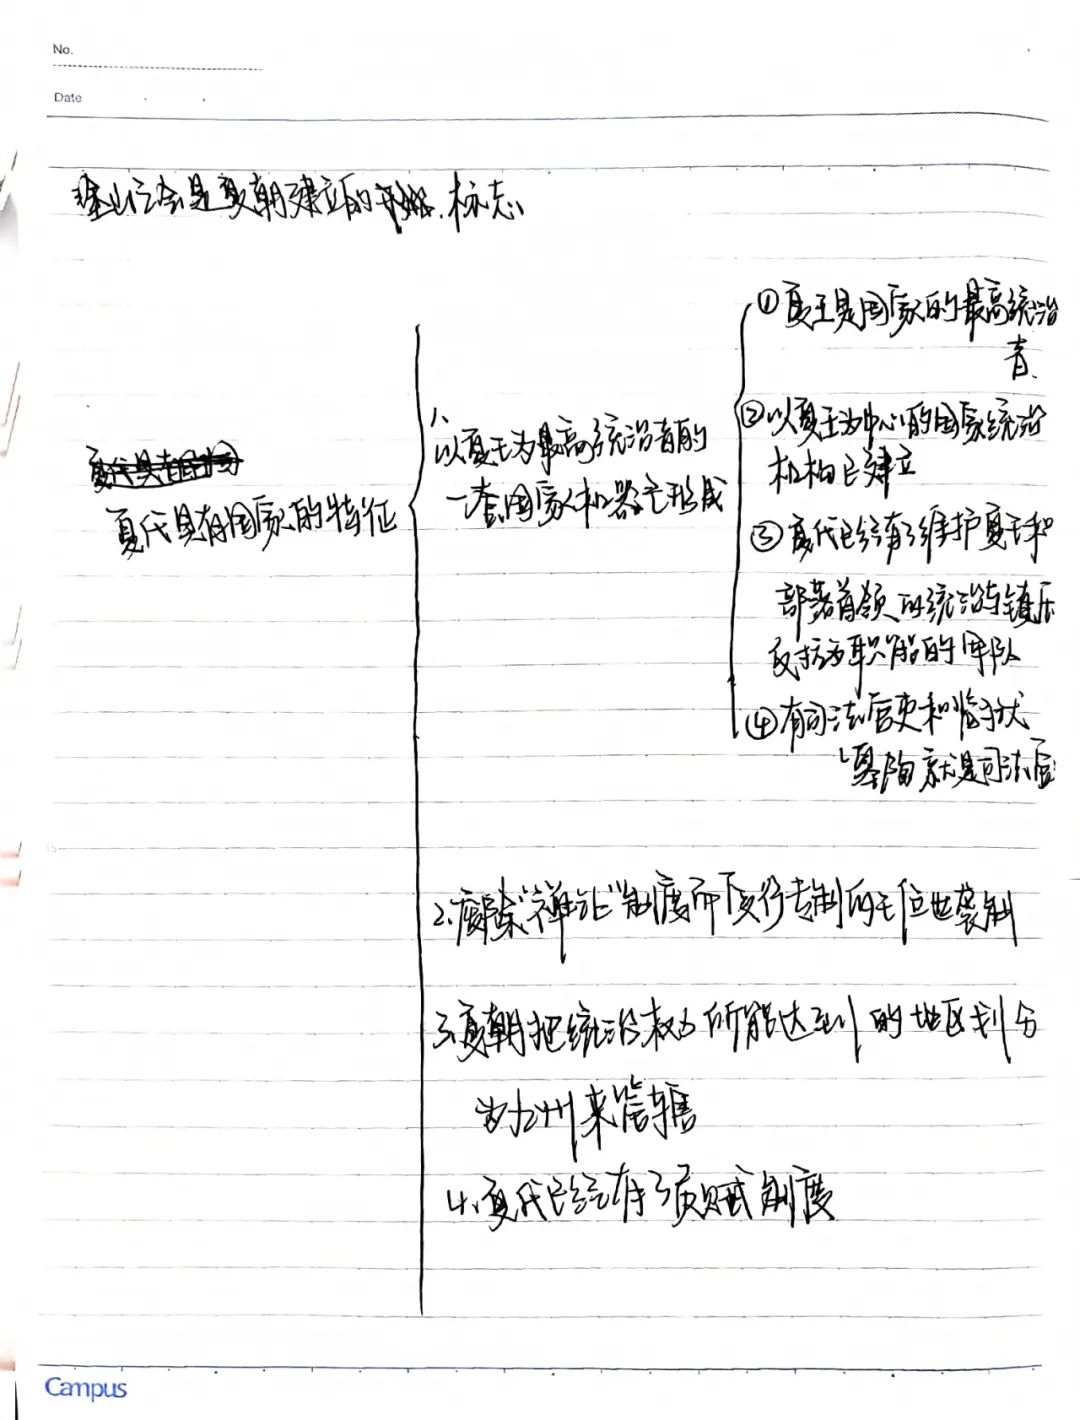 No.
Date
涂山之会是夏朝建立的标志
夏代具有国家的特征
1、以夏王为最高统治者的
一套国家机器已形成
①夏王是国家的最高统治
者.
②以夏王为中心的国家统治
机构已建立
③夏代已经有了维护夏王和
部落首领的统治与镇压
反抗为职能的军队
④有司法官吏和监狱
皋陶就是司法官
2.废除“禅让”制度而实行专制的王位世袭制
3.夏朝把统治权力所能达到的地区划分
为九州来管辖
4.夏代已经有了贡赋制度
15
Campus